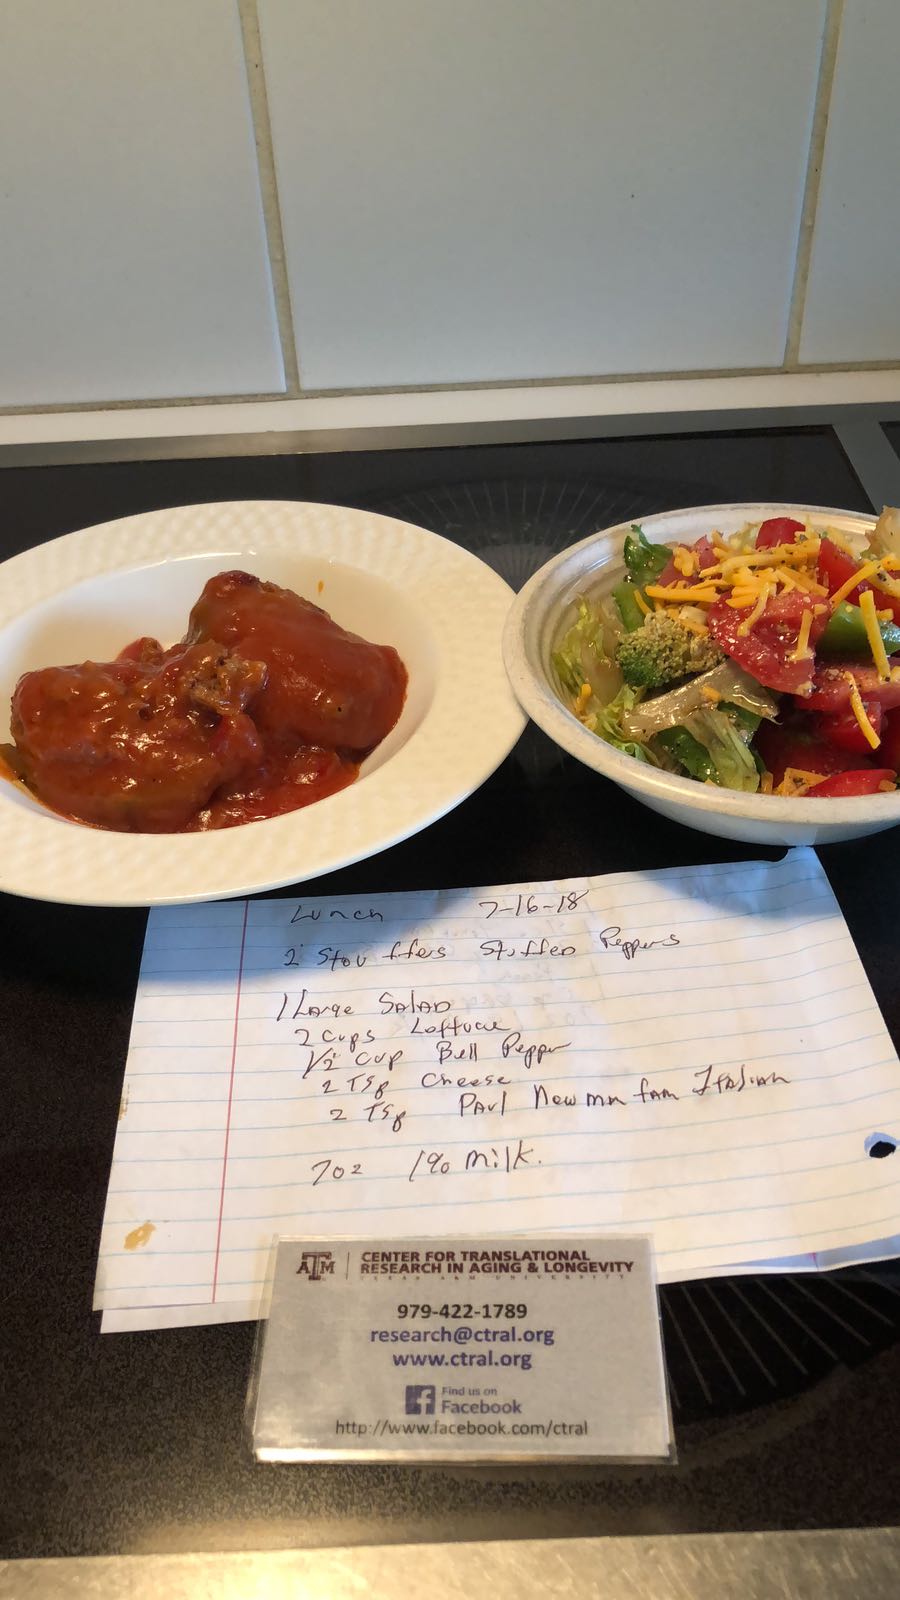 Lunch 7-16-18
2 Stouffers Stuffed Peppers
1 Large Salad
2 Cups Lettuce
1/2 Cup Bell Pepper
2 Tsp Cheese
2 Tsp Paul Newman Italian
7oz 1% Milk.
ATM CENTER FOR TRANSLATIONAL
RESEARCH IN AGING & LONGEVITY
TEXAS A&M UNIVERSITY
979-422-1789
research@ctral.org
www.ctral.org
f Find us on
Facebook
http://www.facebook.com/ctral